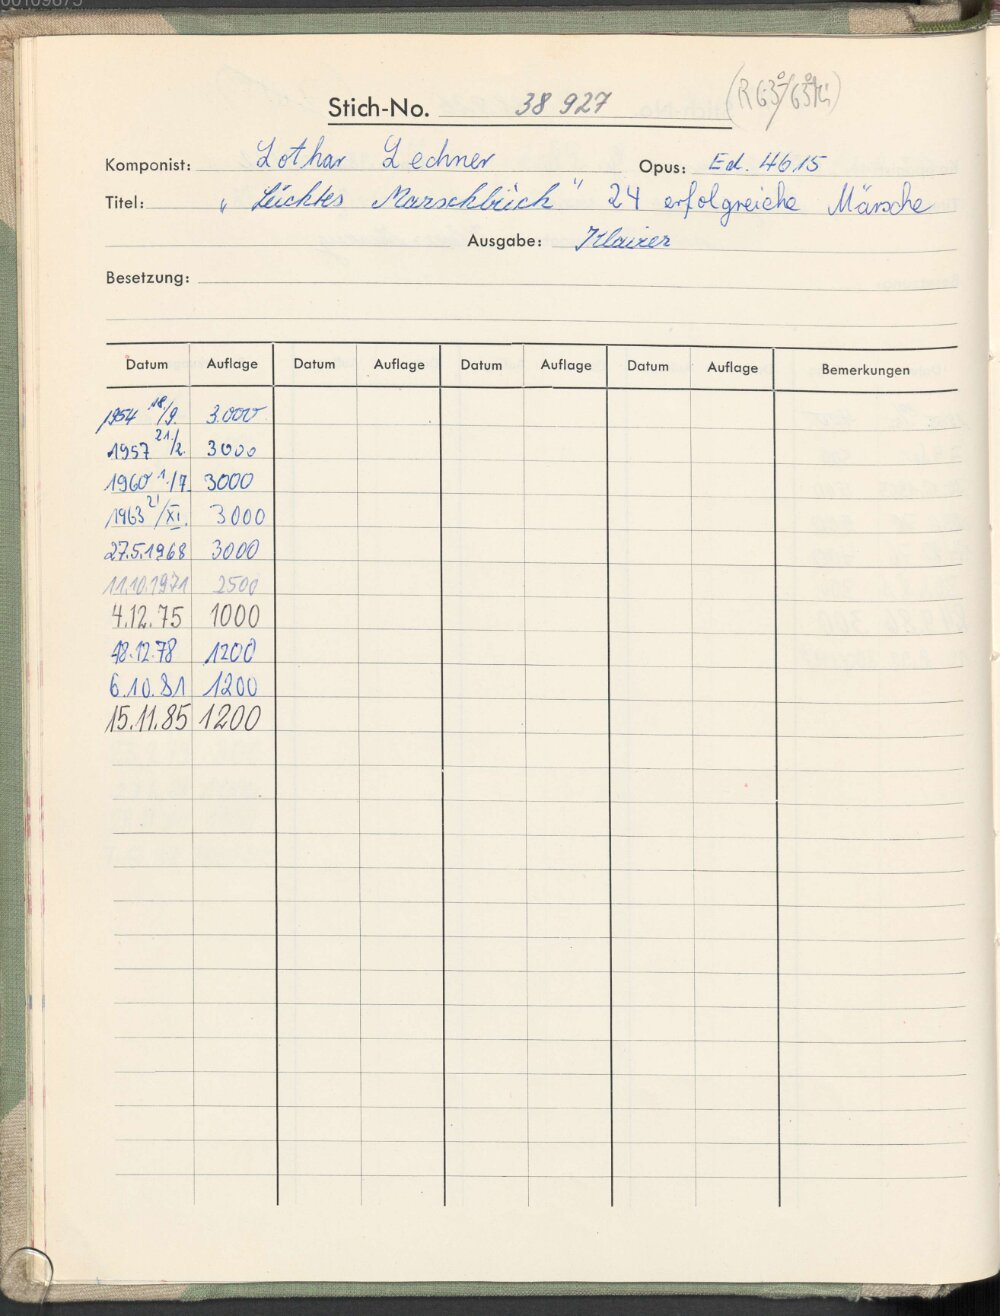 Stich-No. 38 927
Komponist: Lothar Lechner Opus: Ed. 4615
Titel: „Leichtes Marschbuch" 24 erfolgreiche Märsche
Ausgabe: Klavier
Besetzung:
Datum Auflage Datum Auflage Datum Auflage Datum Auflage Bemerkungen
1954 18./9. 3.000
1957 21./2. 3000
1960 1./7. 3000
1963 21/XI. 3000
27.5.1968 3000
11.10.1971 2500
4.12.75 1000
18.12.78 1200
6.10.81 1200
15.11.85 1200